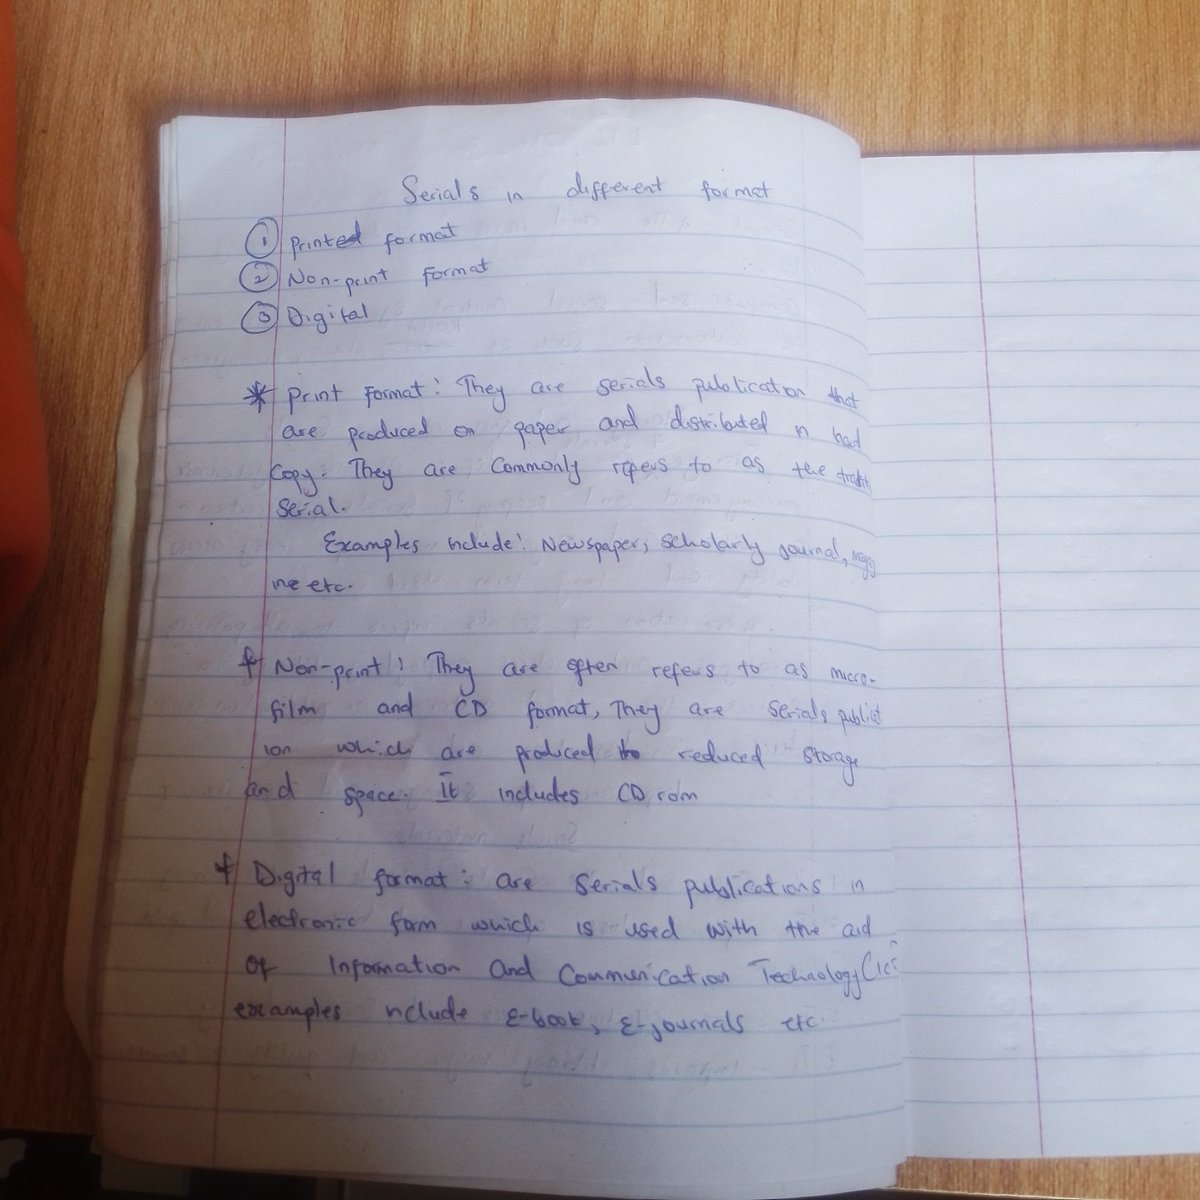 Serials in different format
1 printed format
2 Non-print format
3 Digital
* print format: They are serials publication that
are produced on paper and distributed in hard
copy. They are commonly refers to as the
Serial.
Examples include: Newspaper, scholarly journal, magaz
ine etc.
* Non-print: They are often refers to as micro-
film and CD format, They are serials publicat
ion which are produced to reduced storage
and space. It includes CD rom
* Digital format: are serials publications in
electronic form which is used with the aid
of Information and Communication Technology (ICT
examples include E-book, E-journals etc.